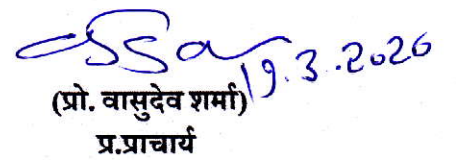 19.3.2020
(प्रो. वासुदेव शर्मा)
प्र.प्राचार्य